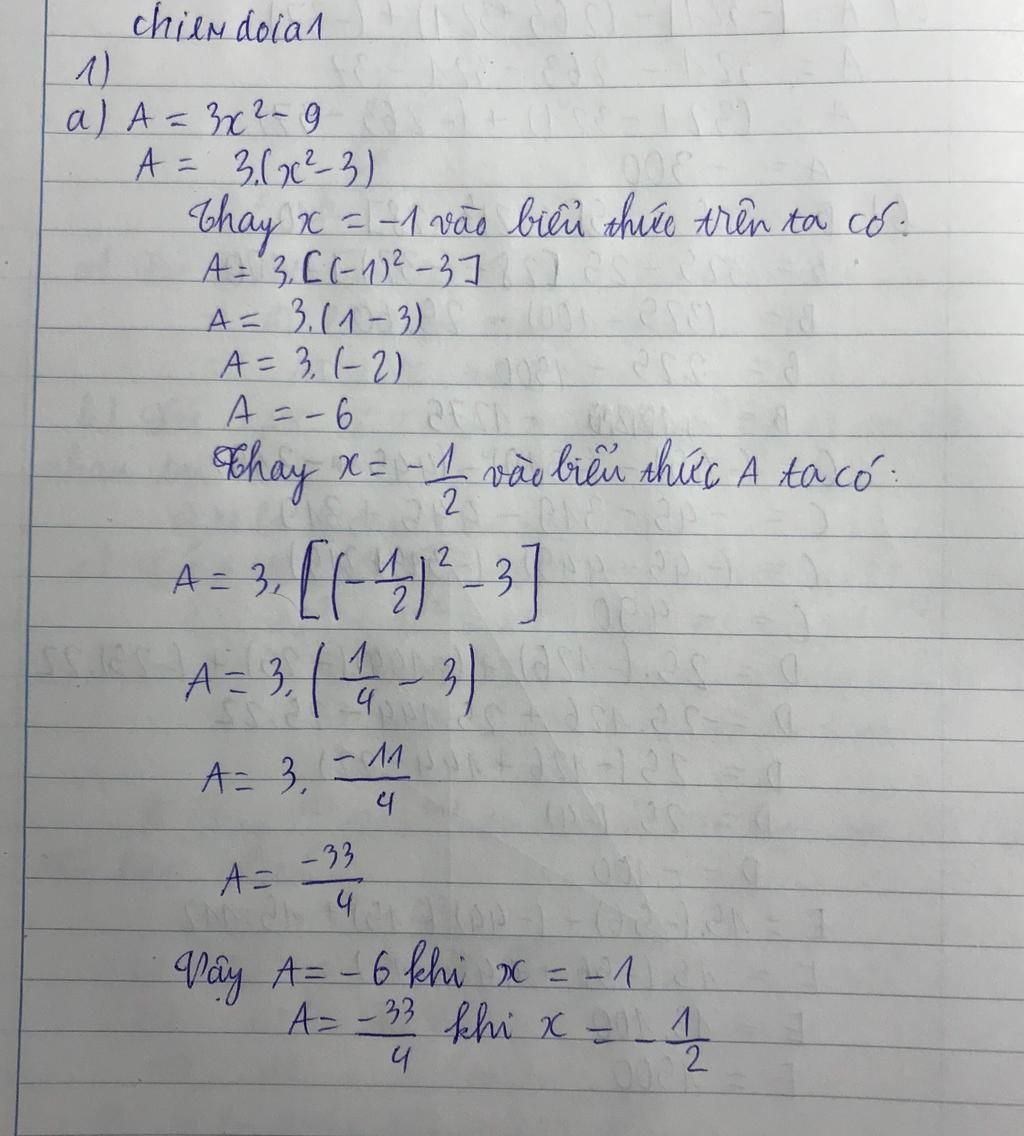 chiendoia1
1)
a) A = 3x² - 9
A = 3.(x² - 3)
Thay x = -1 vào biểu thức trên ta có:
A = 3.[(-1)² - 3]
A = 3.(1 - 3)
A = 3.(-2)
A = -6
Thay x = -1/2 vào biểu thức A ta có:
A = 3.[(-1/2)² - 3]
A = 3.(1/4 - 3)
A = 3. -11/4
A = -33/4
Vậy A = -6 khi x = -1
A = -33/4 khi x = -1/2